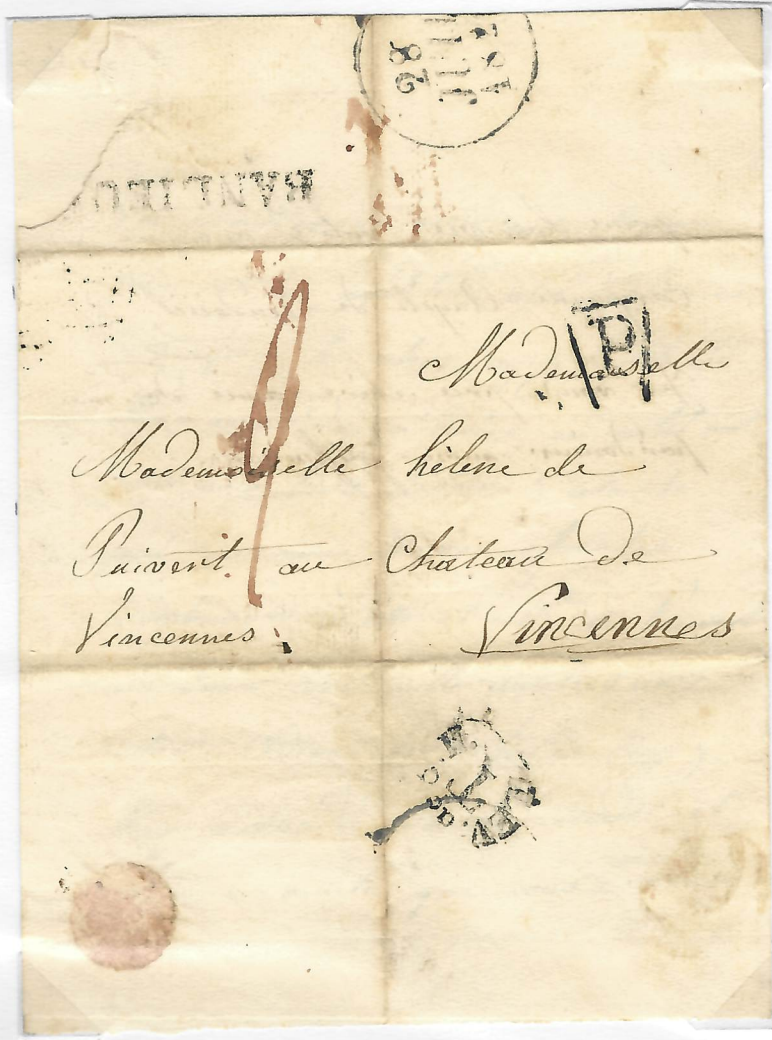 28
BANLIEU
P
Mademoiselle
Mademoiselle hélene de
Puivert au Chateau de
Vincennes. Vincennes
LEV.